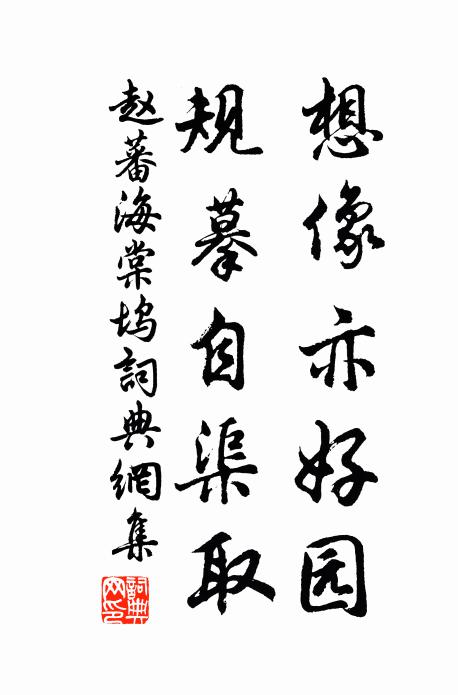 想像亦好园
规摹自渠取
赵蕃海棠坞詞典網集
詞典网印